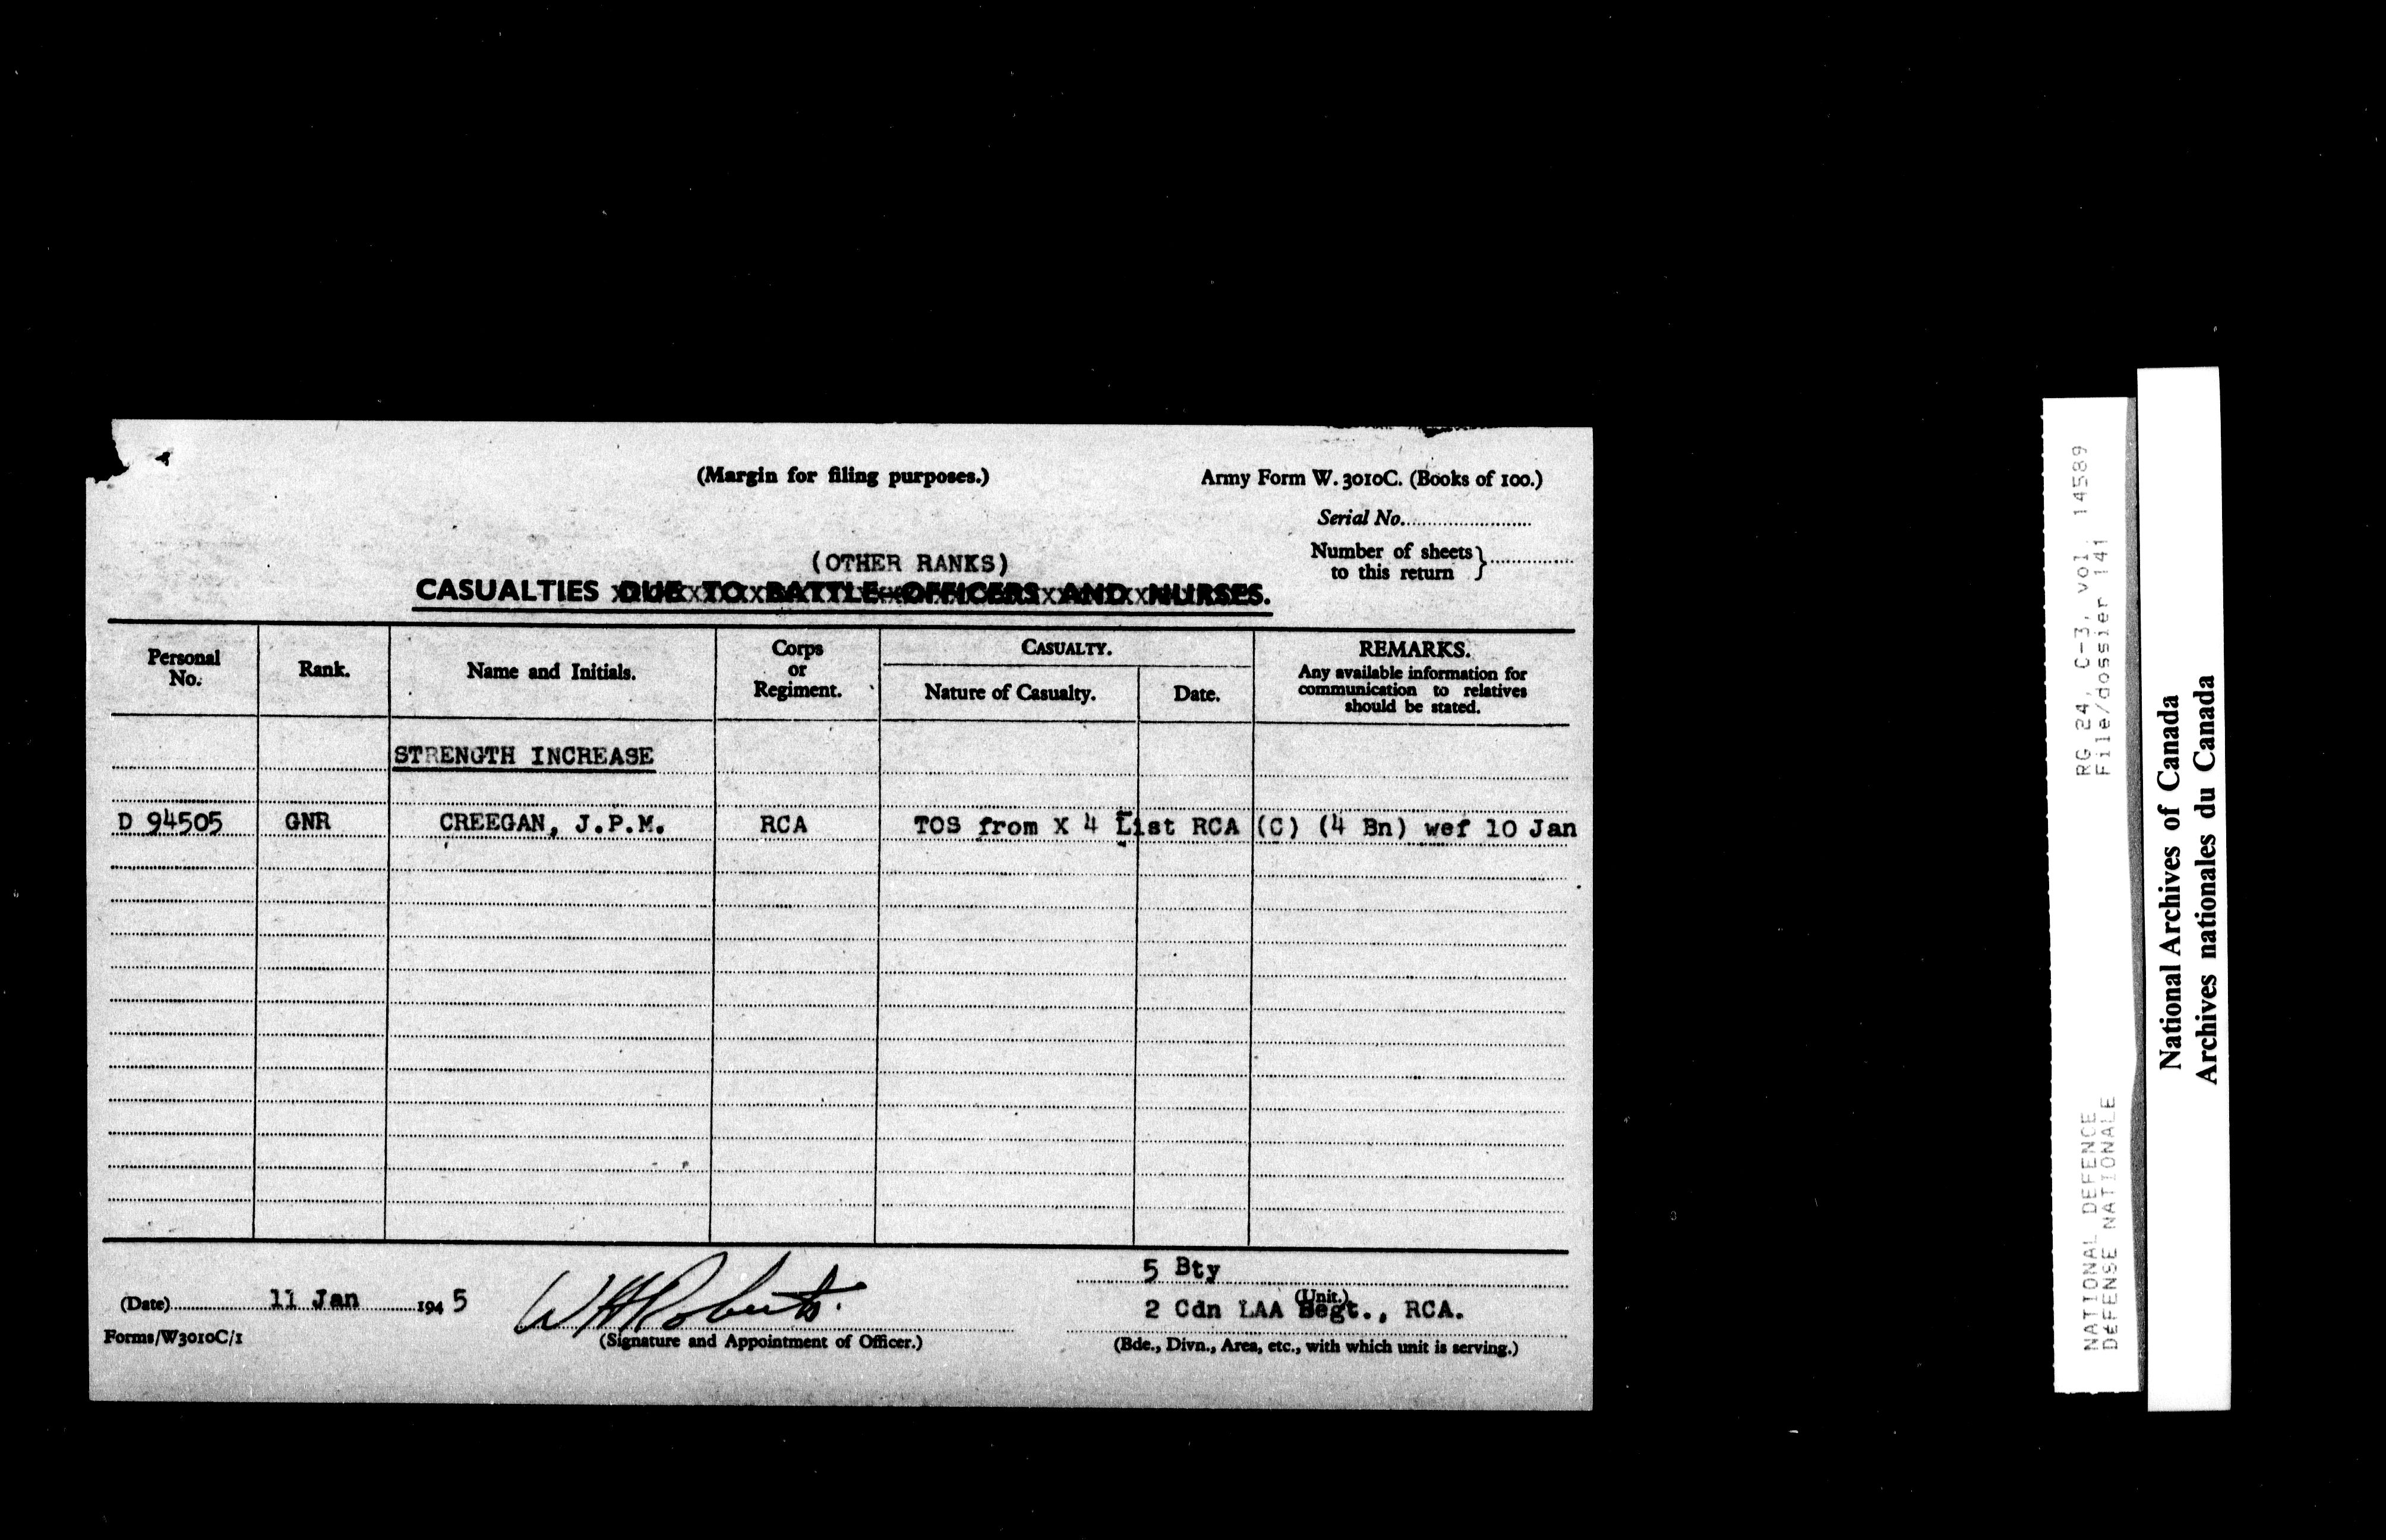 (Margin for filing purposes.)
Army Form W. 3010C. (Books of 100.)
Serial No.
Number of sheets to this return }
(OTHER RANKS)
CASUALTIES DUE TO BATTLE—OFFICERS AND NURSES.
Personal No.
Rank.
Name and Initials.
Corps or Regiment.
CASUALTY.
Nature of Casualty.
Date.
REMARKS.
Any available information for communication to relatives should be stated.
STRENGTH INCREASE
D 94505 GNR CREEGAN, J.P.M. RCA TOS from X 4 List RCA (C) (4 Bn) wef 10 Jan
(Date) 11 Jan 1945
WHRoberts.
(Signature and Appointment of Officer.)
Forms/W3010C/1
5 Bty
(Unit.)
2 Cdn LAA Regt., RCA.
(Bde., Divn., Area, etc., with which unit is serving.)
RG 24, C-3, vol. 14589
File/dossier 141
NATIONAL DEFENCE
DÉFENSE NATIONALE
National Archives of Canada
Archives nationales du Canada